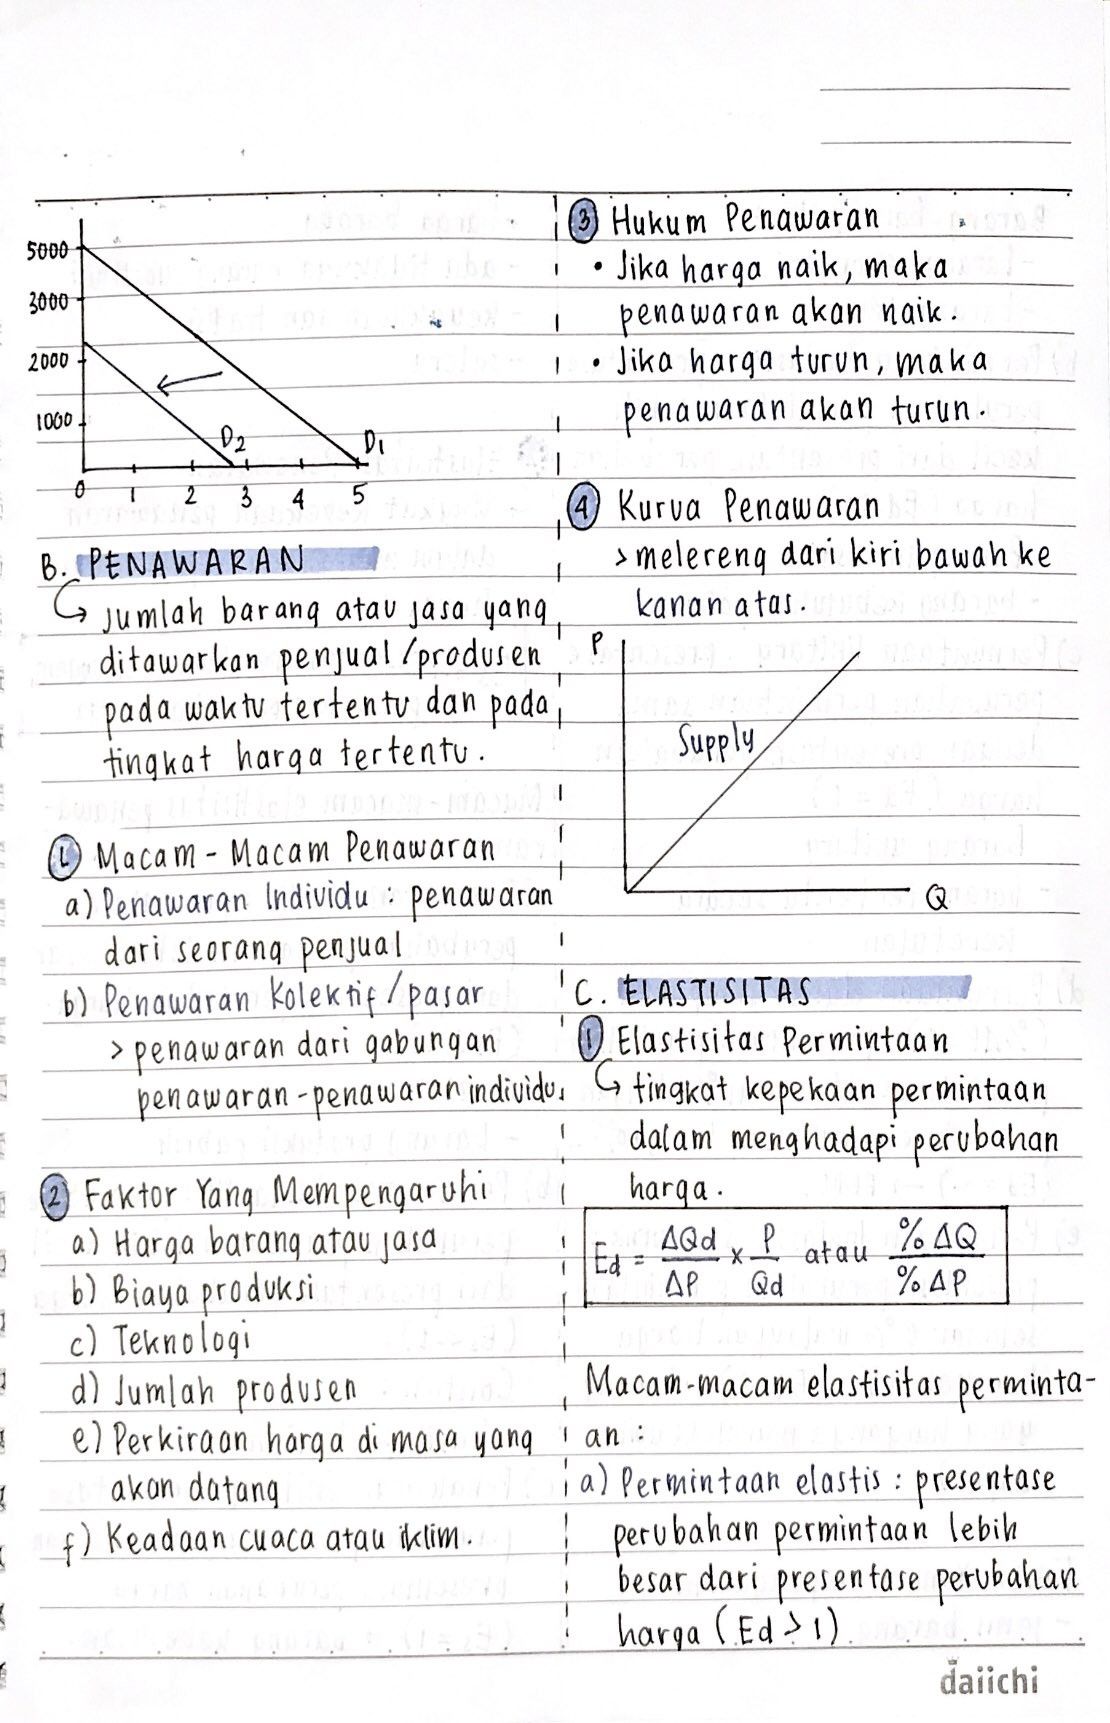 5000
3000
2000
1000
D2
D1
0 1 2 3 4 5
B. PENAWARAN
Jumlah barang atau jasa yang
ditawarkan penjual/produsen
pada waktu tertentu dan pada
tingkat harga tertentu.
1 Macam - Macam Penawaran
a) Penawaran Individu : penawaran
dari seorang penjual
b) Penawaran Kolektif/pasar
> penawaran dari gabungan
penawaran-penawaran individu
2 Faktor Yang Mempengaruhi
a) Harga barang atau jasa
b) Biaya produksi
c) Teknologi
d) Jumlah produsen
e) Perkiraan harga di masa yang
akan datang
f) Keadaan cuaca atau iklim.
3 Hukum Penawaran
• Jika harga naik, maka
penawaran akan naik.
• Jika harga turun, maka
penawaran akan turun.
4 Kurva Penawaran
> melereng dari kiri bawah ke
kanan atas.
P
Supply
Q
C. ELASTISITAS
1 Elastisitas Permintaan
tingkat kepekaan permintaan
dalam menghadapi perubahan
harga.
Ed = ΔQd/ΔP x P/Qd atau %ΔQ/%ΔP
Macam-macam elastisitas perminta-
an :
a) Permintaan elastis : presentase
perubahan permintaan lebih
besar dari presentase perubahan
harga (Ed > 1)
daiichi